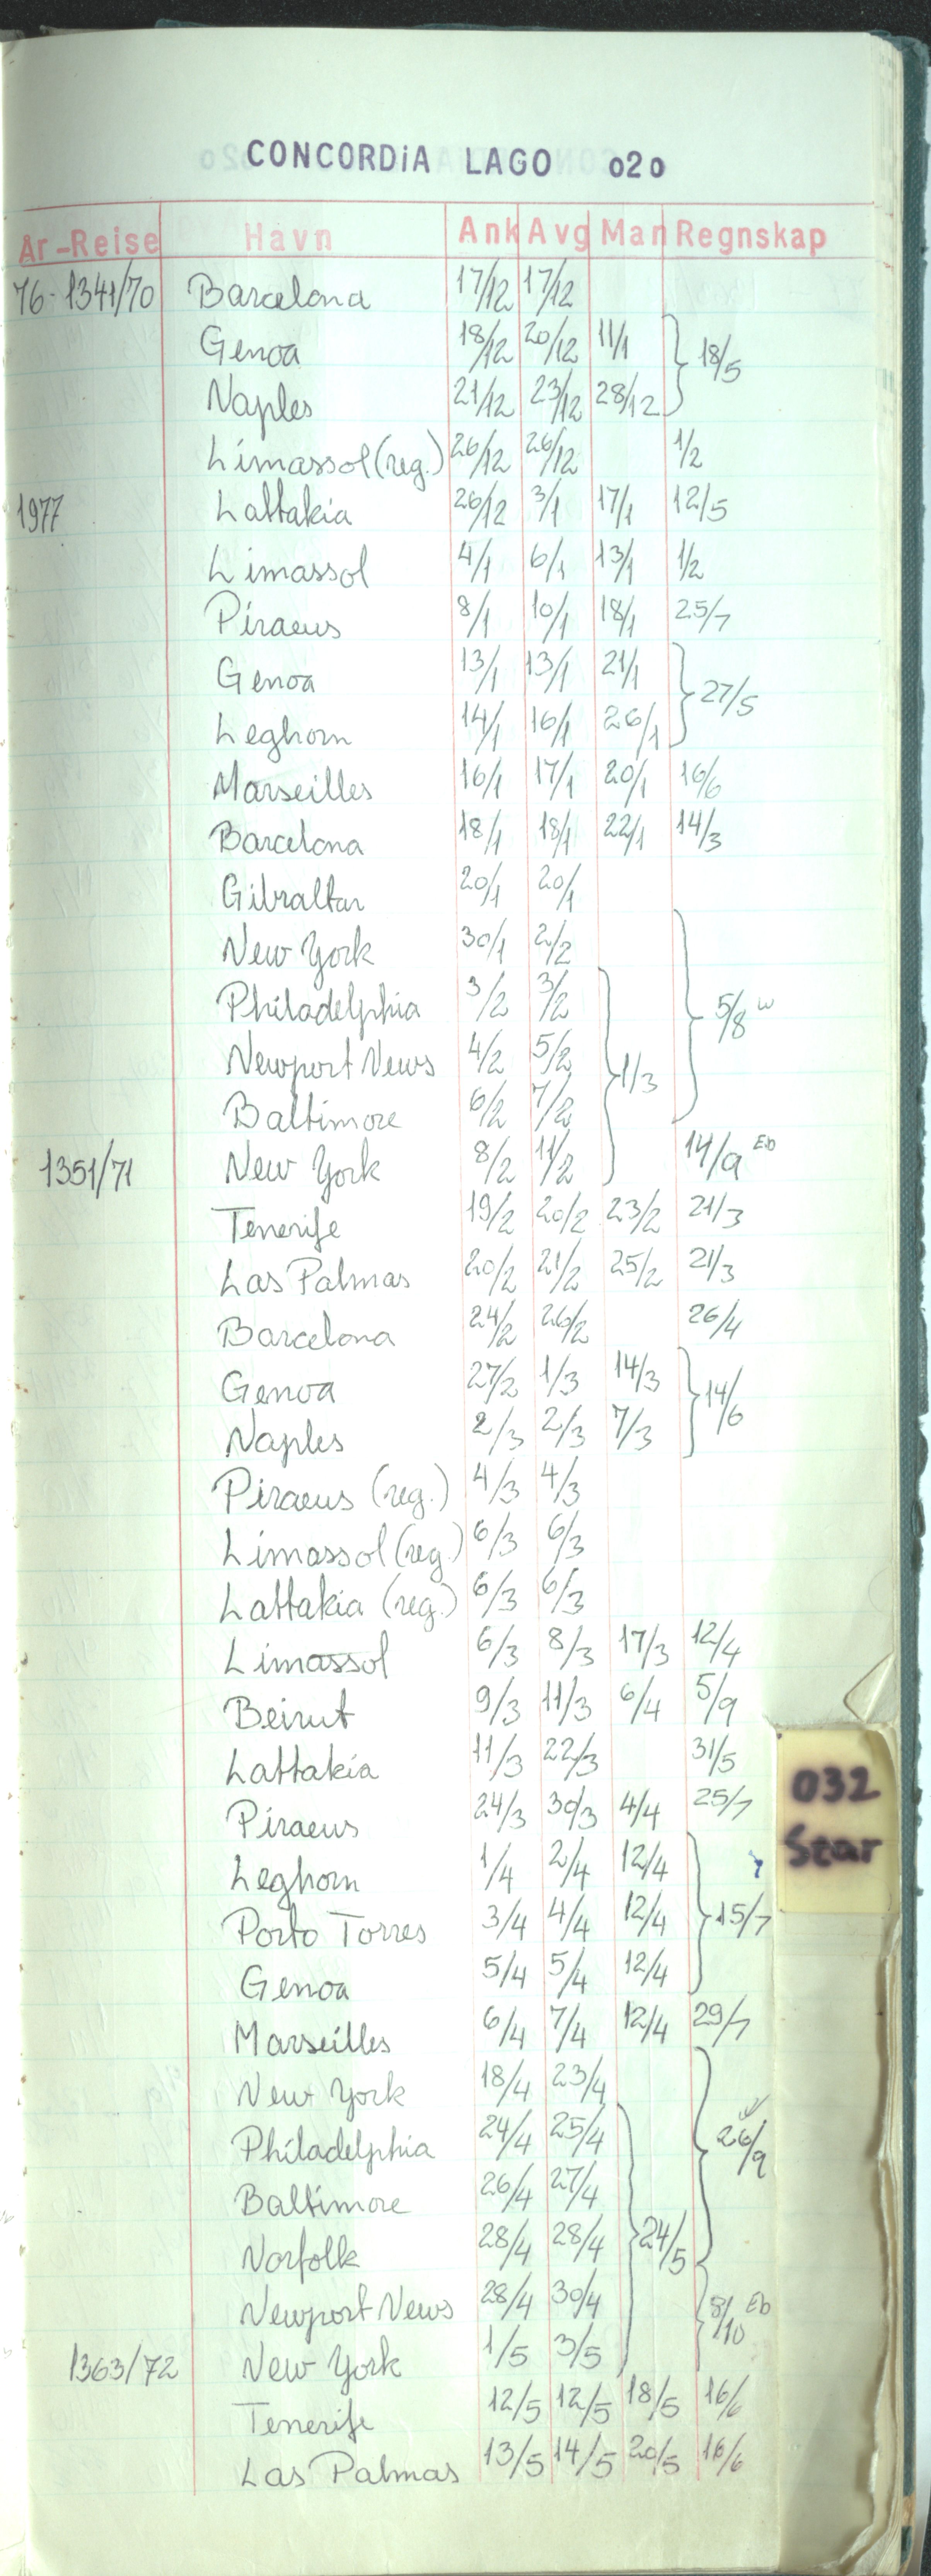 CONCORDiA LAGO 020
År-Reise Havn Ank Avg Man Regnskap
76-1341/70 Barcelona 17/12 17/12
Genoa 18/12 20/12 11/1 } 18/5
Naples 21/12 23/12 28/12
Limassol (reg.) 26/12 26/12 1/2
1977 Lattakia 26/12 3/1 17/1 12/5
Limassol 4/1 6/1 13/1 1/2
Piraeus 8/1 10/1 18/1 25/7
Genoa 13/1 13/1 21/1 } 27/5
Leghorn 14/1 16/1 26/1
Marseilles 16/1 17/1 20/1 16/6
Barcelona 18/1 18/1 22/1 14/3
Gibraltar 20/1 20/1
New York 30/1 2/2
Philadelphia 3/2 3/2 } 5/8 w
Newport News 4/2 5/2 } 1/3
Baltimore 6/2 7/2
1351/71 New York 8/2 11/2 14/9 Eb
Tenerife 19/2 20/2 23/2 21/3
Las Palmas 20/2 21/2 25/2 21/3
Barcelona 24/2 26/2 26/4
Genoa 27/2 1/3 14/3 } 14/6
Naples 2/3 2/3 7/3
Piraeus (reg.) 4/3 4/3
Limassol (reg.) 6/3 6/3
Lattakia (reg.) 6/3 6/3
Limassol 6/3 8/3 17/3 12/4
Beirut 9/3 11/3 6/4 5/9
Lattakia 11/3 22/3 31/5
Piraeus 24/3 30/3 4/4 25/7
Leghorn 1/4 2/4 12/4
Porto Torres 3/4 4/4 12/4 } 15/7
Genoa 5/4 5/4 12/4
Marseilles 6/4 7/4 12/4 29/7
New York 18/4 23/4
Philadelphia 24/4 25/4 } 26/9 w
Baltimore 26/4 27/4
Norfolk 28/4 28/4 } 24/5
Newport News 28/4 30/4 } 8/10 Eb
1363/72 New York 1/5 3/5
Tenerife 12/5 12/5 18/5 16/6
Las Palmas 13/5 14/5 20/5 16/6
032
Star